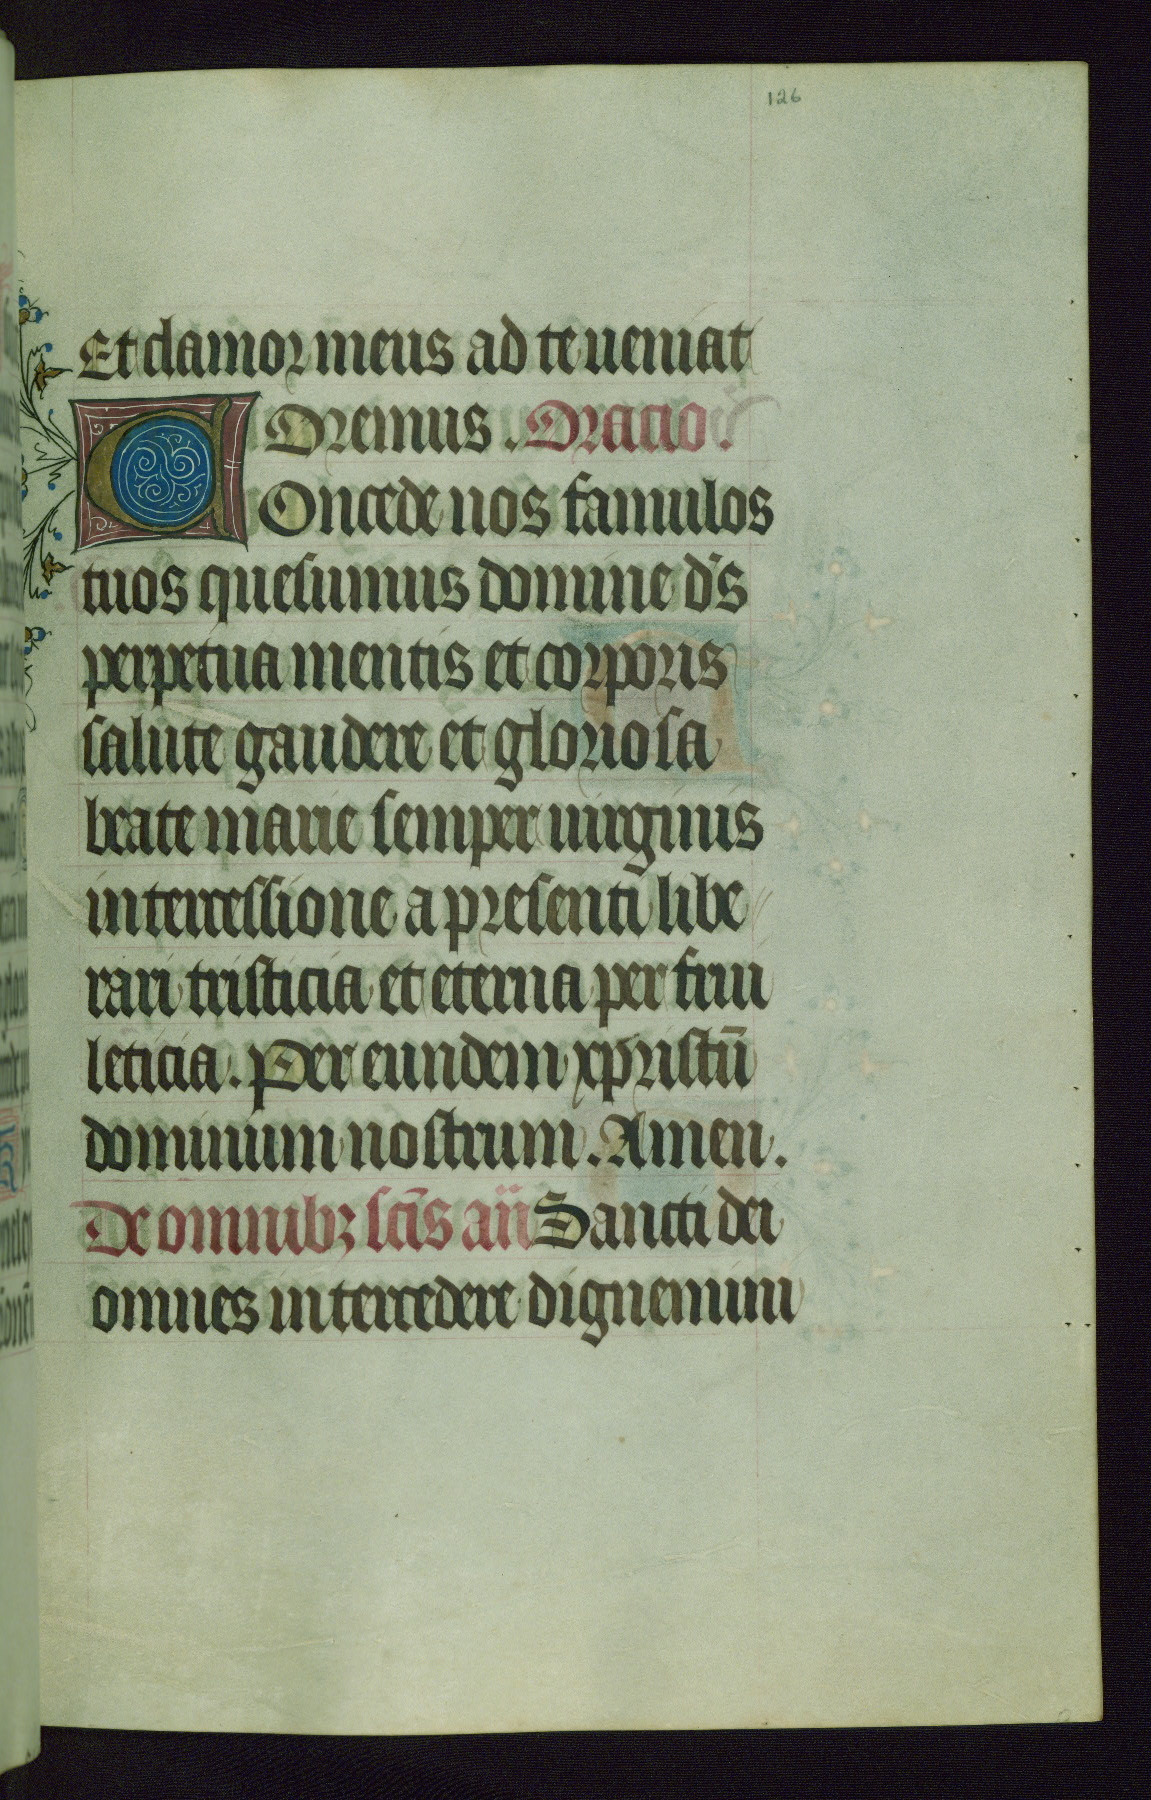 126
Et clamor meus ad te ueniat
Oremus. Oracio.
COncede nos famulos
tuos quesumus domine d̄s
perpetua mentis et corporis
salute gaudere et gloriosa
beate marie semper uirginis
intercessione a presenti libe
rari tristicia et eterna per frui
leticia. Per eundem xp̄ristū
dominum nostrum. Amen.
De omnibꝫ sc̄is an̄ Sancti dei
omnes intercedere dignemini